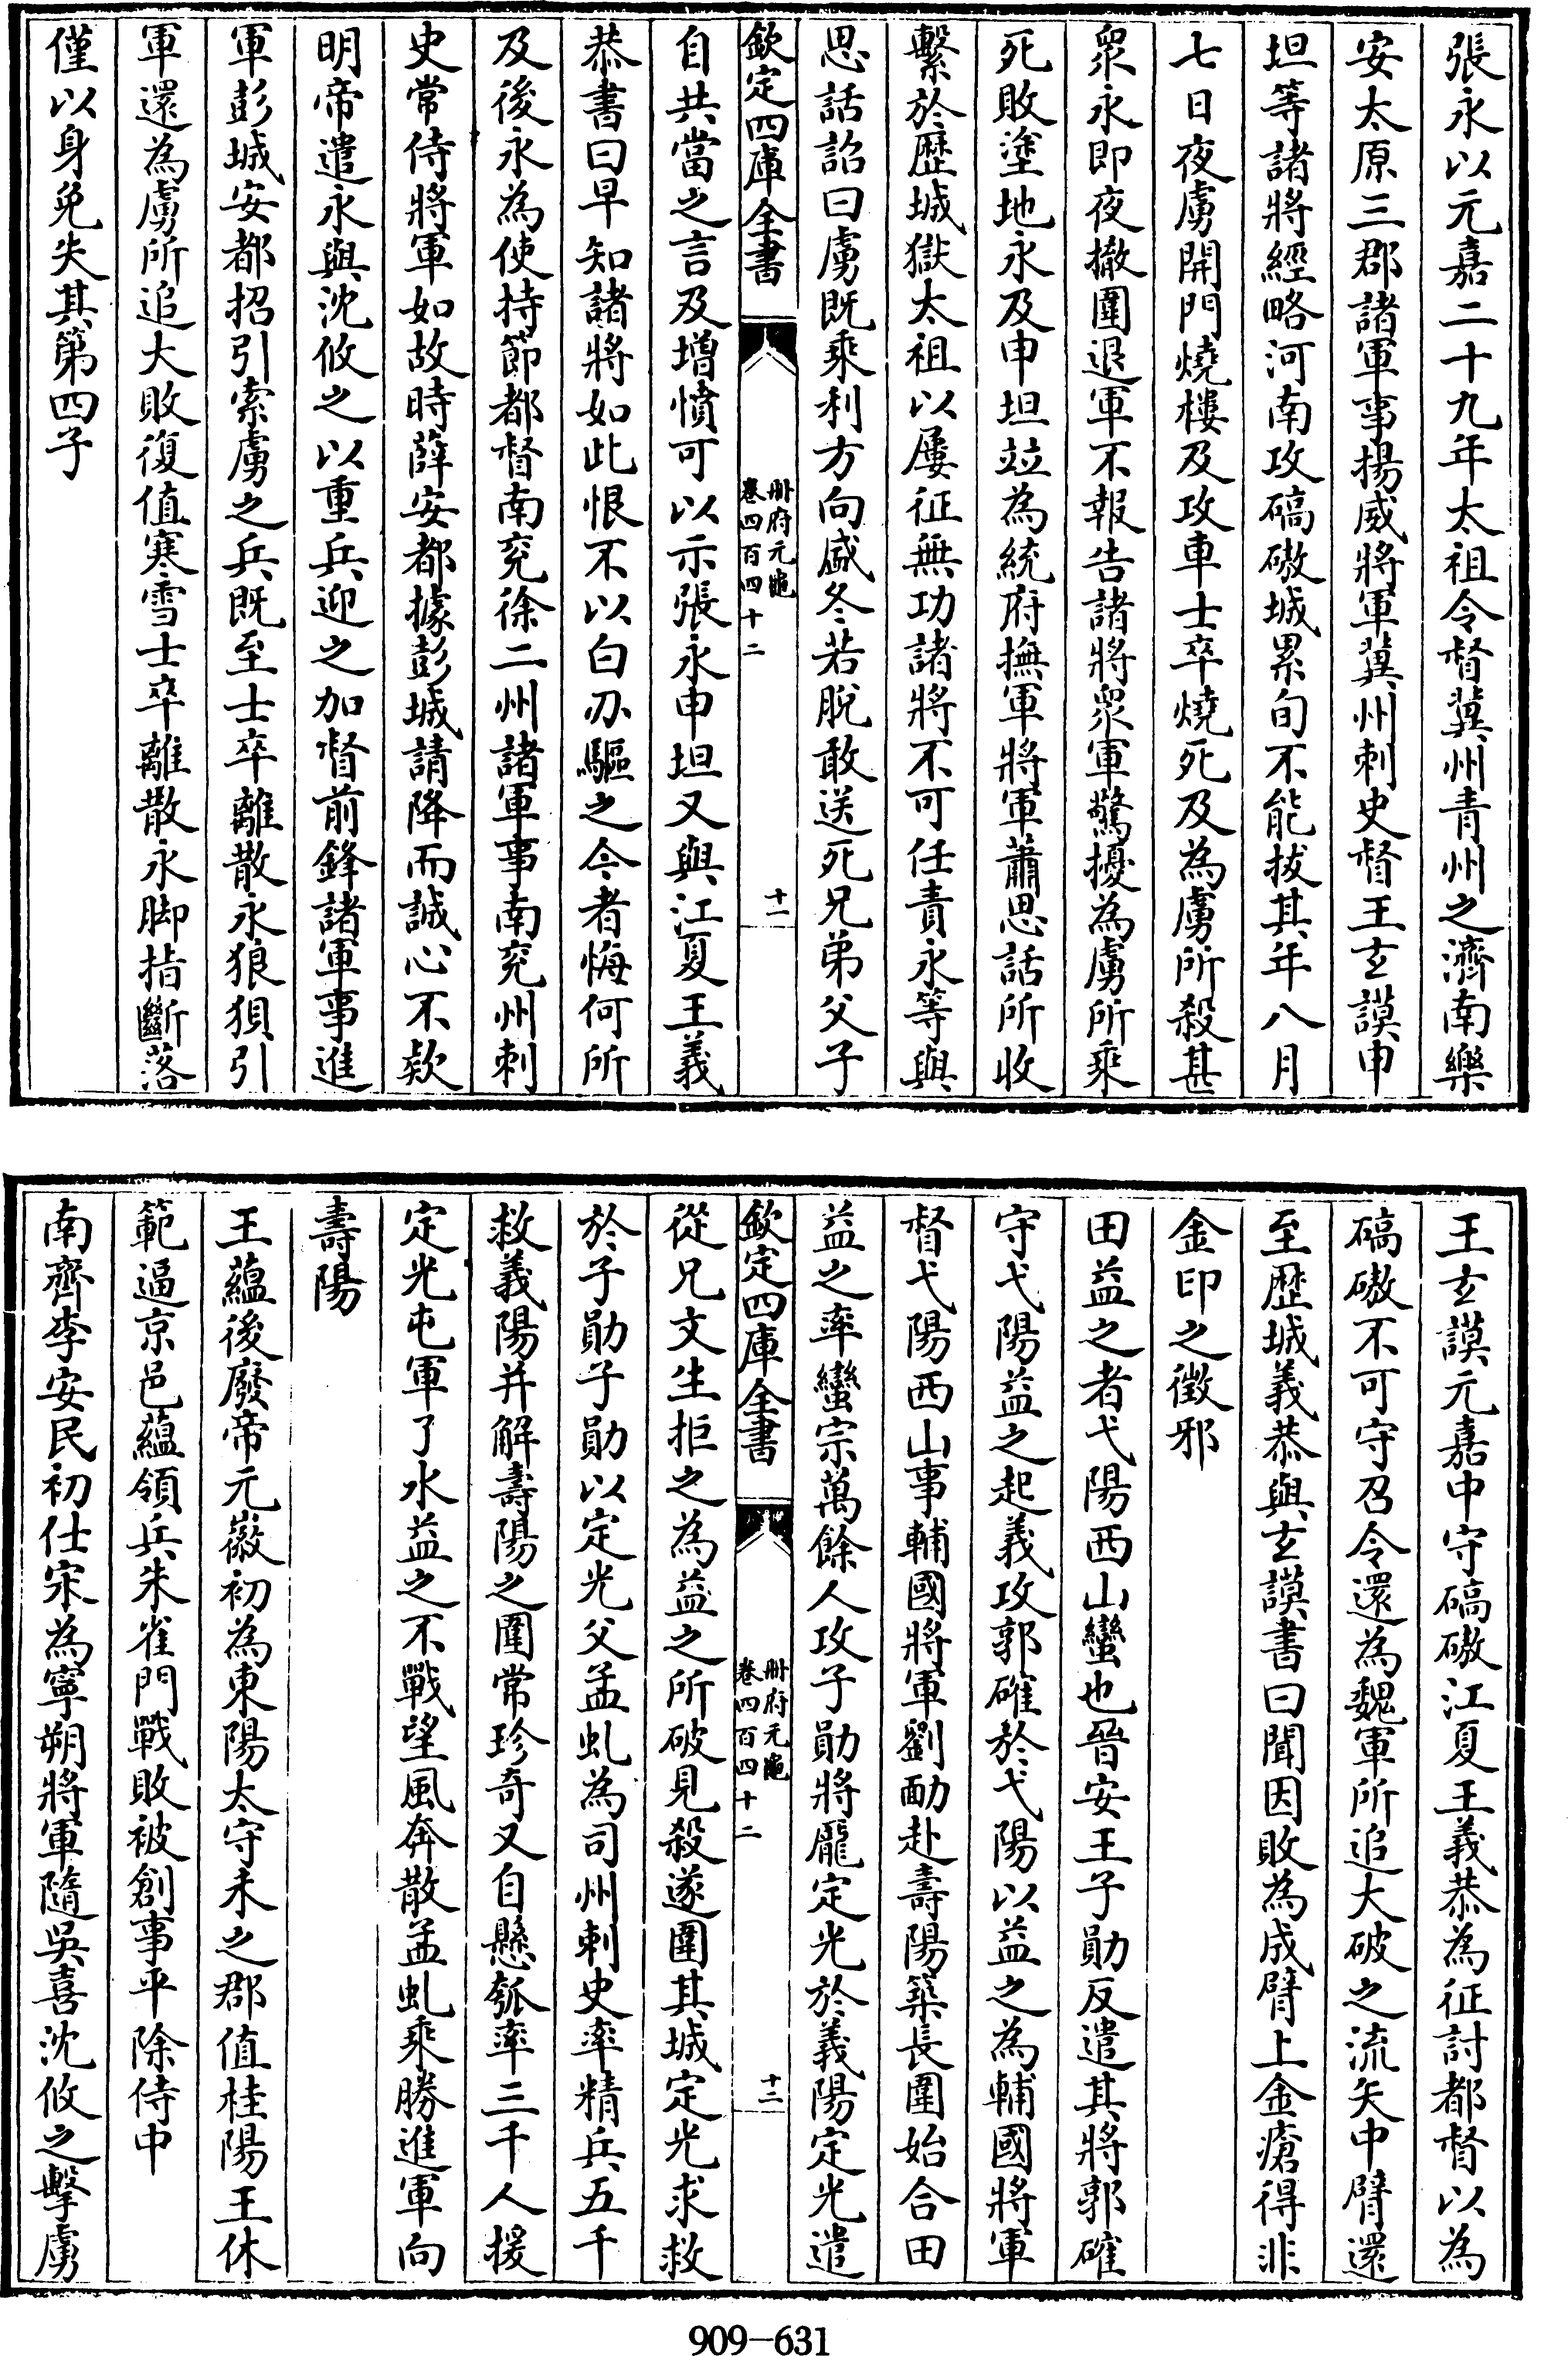 張永以元嘉二十九年太祖令督冀州青州之濟南樂
安太原三郡諸軍事揚威將軍冀州刺史督王玄謨申
坦等諸將經略河南攻碻磝城累旬不能拔其年八月
七日夜虜開門燒樓及攻車士卒燒死及為虜所殺甚
眾永即夜撤圍退軍不報告諸將眾軍驚擾為虜所乘
死敗塗地永及申坦竝為統府撫軍將軍蕭思話所收
繫於歴城獄太祖以屢征無功諸將不可任責永等與
思話詔曰虜既乘利方向盛冬若脫敢送死兄弟父子
欽定四庫全書
冊府元龜
卷四百四十二
十一
自共當之言及增憤可以示張永申坦又與江夏王義
恭書曰早知諸將如此恨不以白刃驅之今者悔何所
及後永為使持節都督南兖徐二州諸軍事南兖州刺
史常侍將軍如故時薛安都據彭城請降而誠心不欵
明帝遣永與沈攸之以重兵迎之加督前鋒諸軍事進
軍彭城安都招引索虜之兵既至士卒離散永狼狽引
軍還為虜所追大敗復值寒雪士卒離散永脚指斷落
僅以身免失其第四子
王玄謨元嘉中守碻磝江夏王義恭為征討都督以為
碻磝不可守召令還為魏軍所追大破之流矢中臂還
至歴城義恭與玄謨書曰聞因敗為成臂上金瘡得非
金印之徵邪
田益之者弋陽西山蠻也晉安王子勛反遣其將郭確
守弋陽益之起義攻郭確於弋陽以益之為輔國將軍
督弋陽西山事輔國將軍劉勔赴壽陽築長圍始合田
益之率蠻宗萬餘人攻子勛將龎定光於義陽定光遣
欽定四庫全書
冊府元龜
卷四百四十二
十二
從兄文生拒之為益之所破見殺遂圍其城定光求救
於子勛子勛以定光父孟虬為司州刺史率精兵五千
救義陽并解壽陽之圍常珍奇又自懸瓠率三千人援
定光屯軍了水益之不戰望風奔散孟虬乘勝進軍向
壽陽
王蘊後廢帝元徽初為東陽太守未之郡值桂陽王休
範逼京邑蘊領兵朱雀門戰敗被創事平除侍中
南齊李安民初仕宋為寧朔將軍隨吳喜沈攸之擊虜
909-631